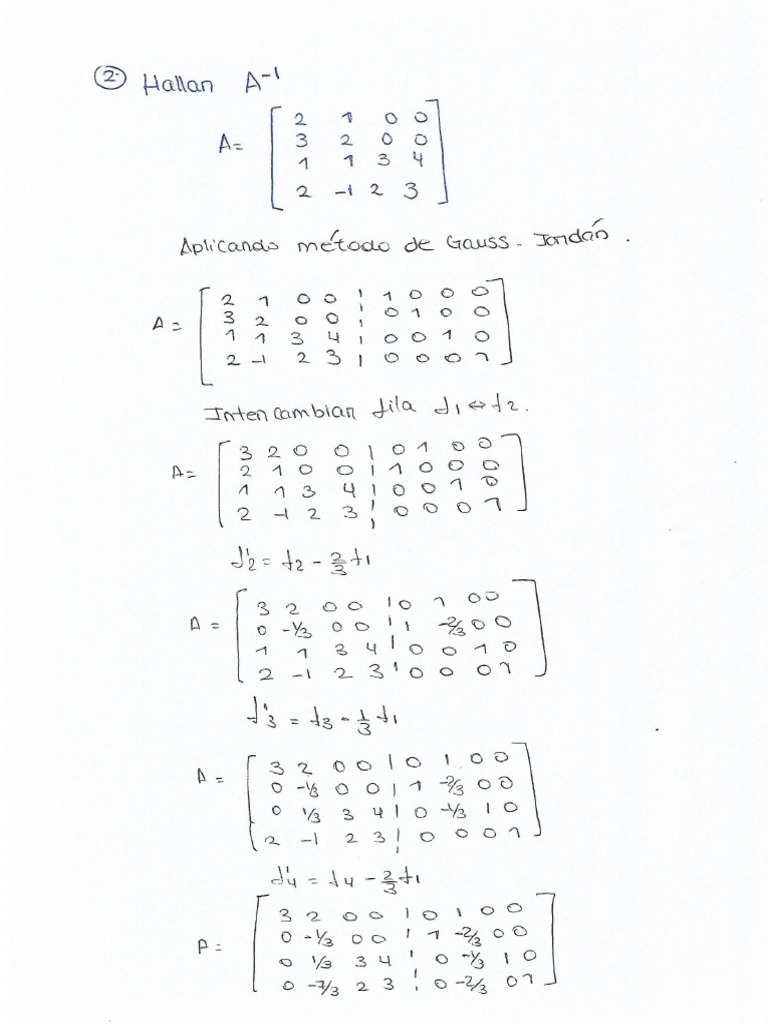 ② Hallar A⁻¹
A= [ 2 1 0 0
3 2 0 0
1 1 3 4
2 -1 2 3 ]
Aplicando método de Gauss - Jordán.
A= [ 2 1 0 0 | 1 0 0 0
3 2 0 0 | 0 1 0 0
1 1 3 4 | 0 0 1 0
2 -1 2 3 | 0 0 0 1 ]
Intercambiar fila f1 ↔ f2.
A= [ 3 2 0 0 | 0 1 0 0
2 1 0 0 | 1 0 0 0
1 1 3 4 | 0 0 1 0
2 -1 2 3 | 0 0 0 1 ]
f'2 = f2 - 2/3 f1
A = [ 3 2 0 0 | 0 1 0 0
0 -1/3 0 0 | 1 -2/3 0 0
1 1 3 4 | 0 0 1 0
2 -1 2 3 | 0 0 0 1 ]
f'3 = f3 - 1/3 f1
A = [ 3 2 0 0 | 0 1 0 0
0 -1/3 0 0 | 1 -2/3 0 0
0 1/3 3 4 | 0 -1/3 1 0
2 -1 2 3 | 0 0 0 1 ]
f'4 = f4 - 2/3 f1
A = [ 3 2 0 0 | 0 1 0 0
0 -1/3 0 0 | 1 -2/3 0 0
0 1/3 3 4 | 0 -1/3 1 0
0 -7/3 2 3 | 0 -2/3 0 1 ]